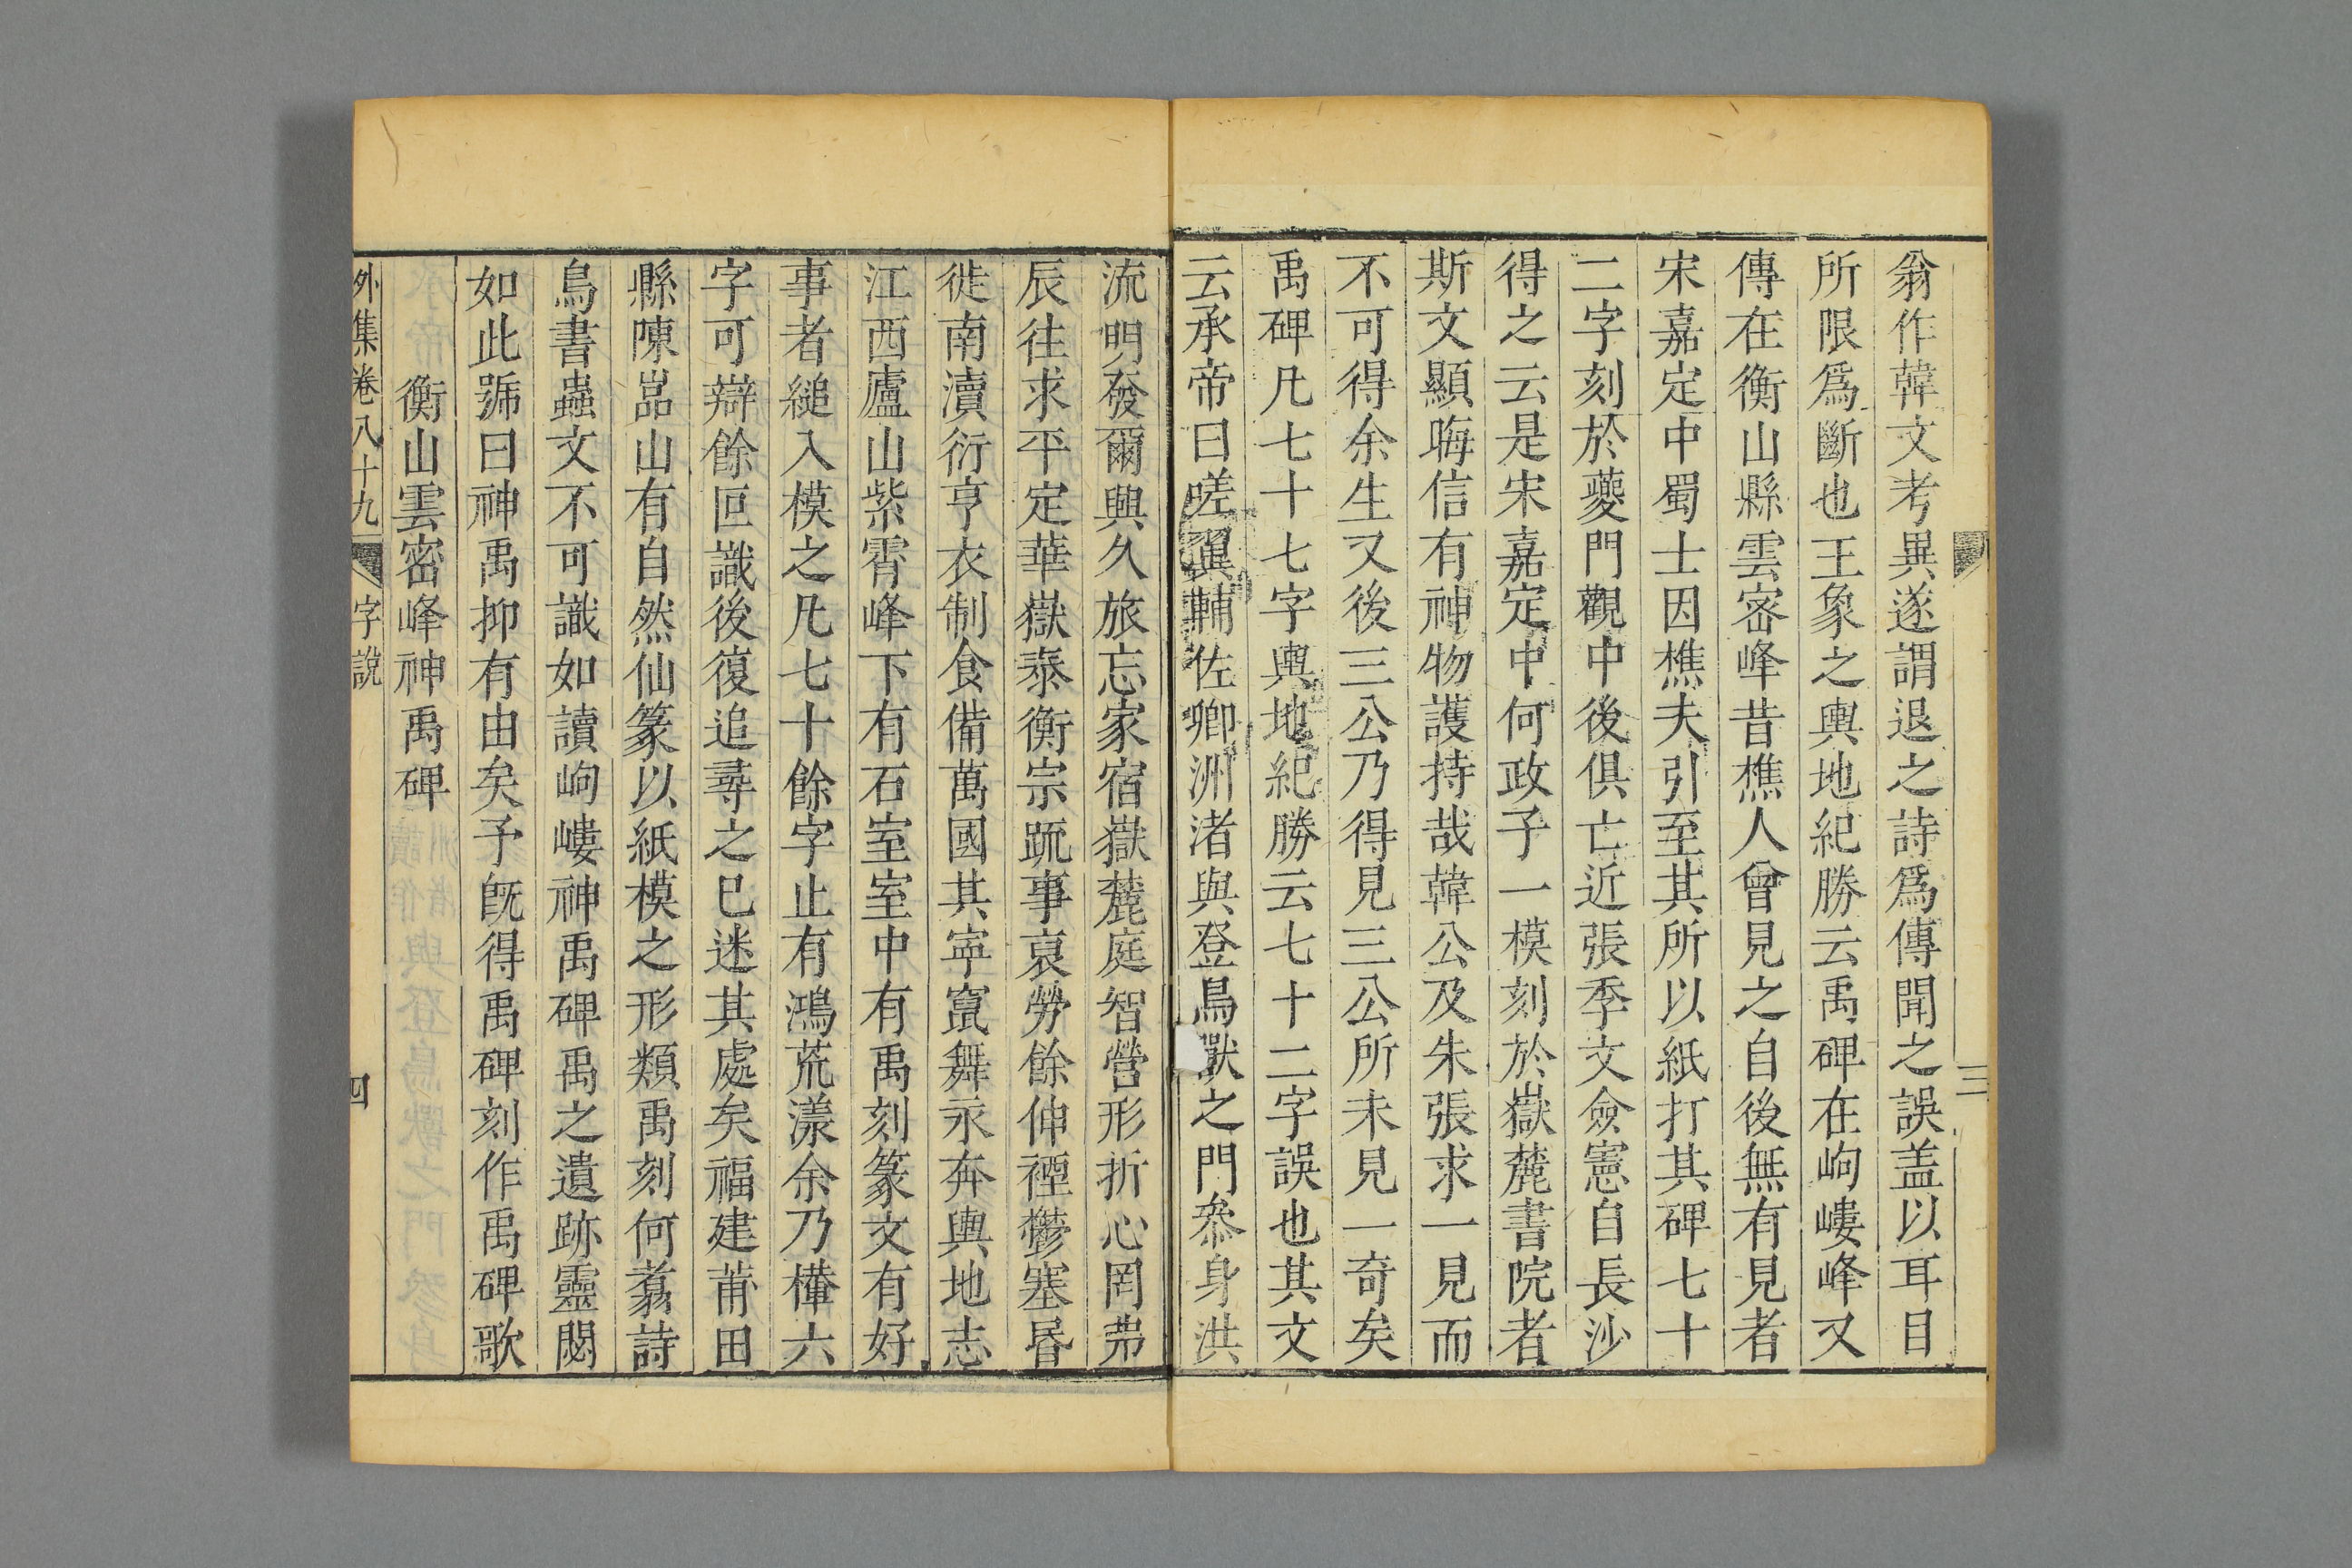 翁作韓文考異遂謂退之詩爲傳聞之誤盖以耳目
所限爲斷也王象之輿地紀勝云禹碑在岣嶁峰又
傳在衡山縣雲密峰昔樵人曾見之自後無有見者
宋嘉定中蜀士因樵夫引至其所以紙打其碑七十
二字刻於夔門觀中後俱亡近張季文僉憲自長沙
得之云是宋嘉定中何政子一模刻於嶽麓書院者
斯文顯晦信有神物護持哉韓公及朱張求一見而
不可得余生又後三公乃得見三公所未見一奇矣
禹碑凡七十七字輿地紀勝云七十二字誤也其文
云承帝曰嗟翼輔佐卿洲渚與登鳥獸之門叅身洪
三
流明發爾興久旅忘家宿嶽麓庭智營形折心罔弗
辰往求平定華嶽泰衡宗疏事裒勞餘伸禋鬱塞昬
徙南瀆衍亨衣制食備萬國其寧竄舞永奔輿地志
江西廬山紫霄峰下有石室室中有禹刻篆文有好
事者縋入模之凡七十餘字止有鴻荒漾余乃㰊六
字可辯餘叵識後復追尋之已迷其處矣福建莆田
縣陳嵓山有自然仙篆以紙模之形類禹刻何翥詩
鳥書蟲文不可識如讀岣嶁神禹碑禹之遺跡靈閟
如此號曰神禹抑有由矣予旣得禹碑刻作禹碑歌
衡山雲密峰神禹碑
外集卷八十九 字說 四